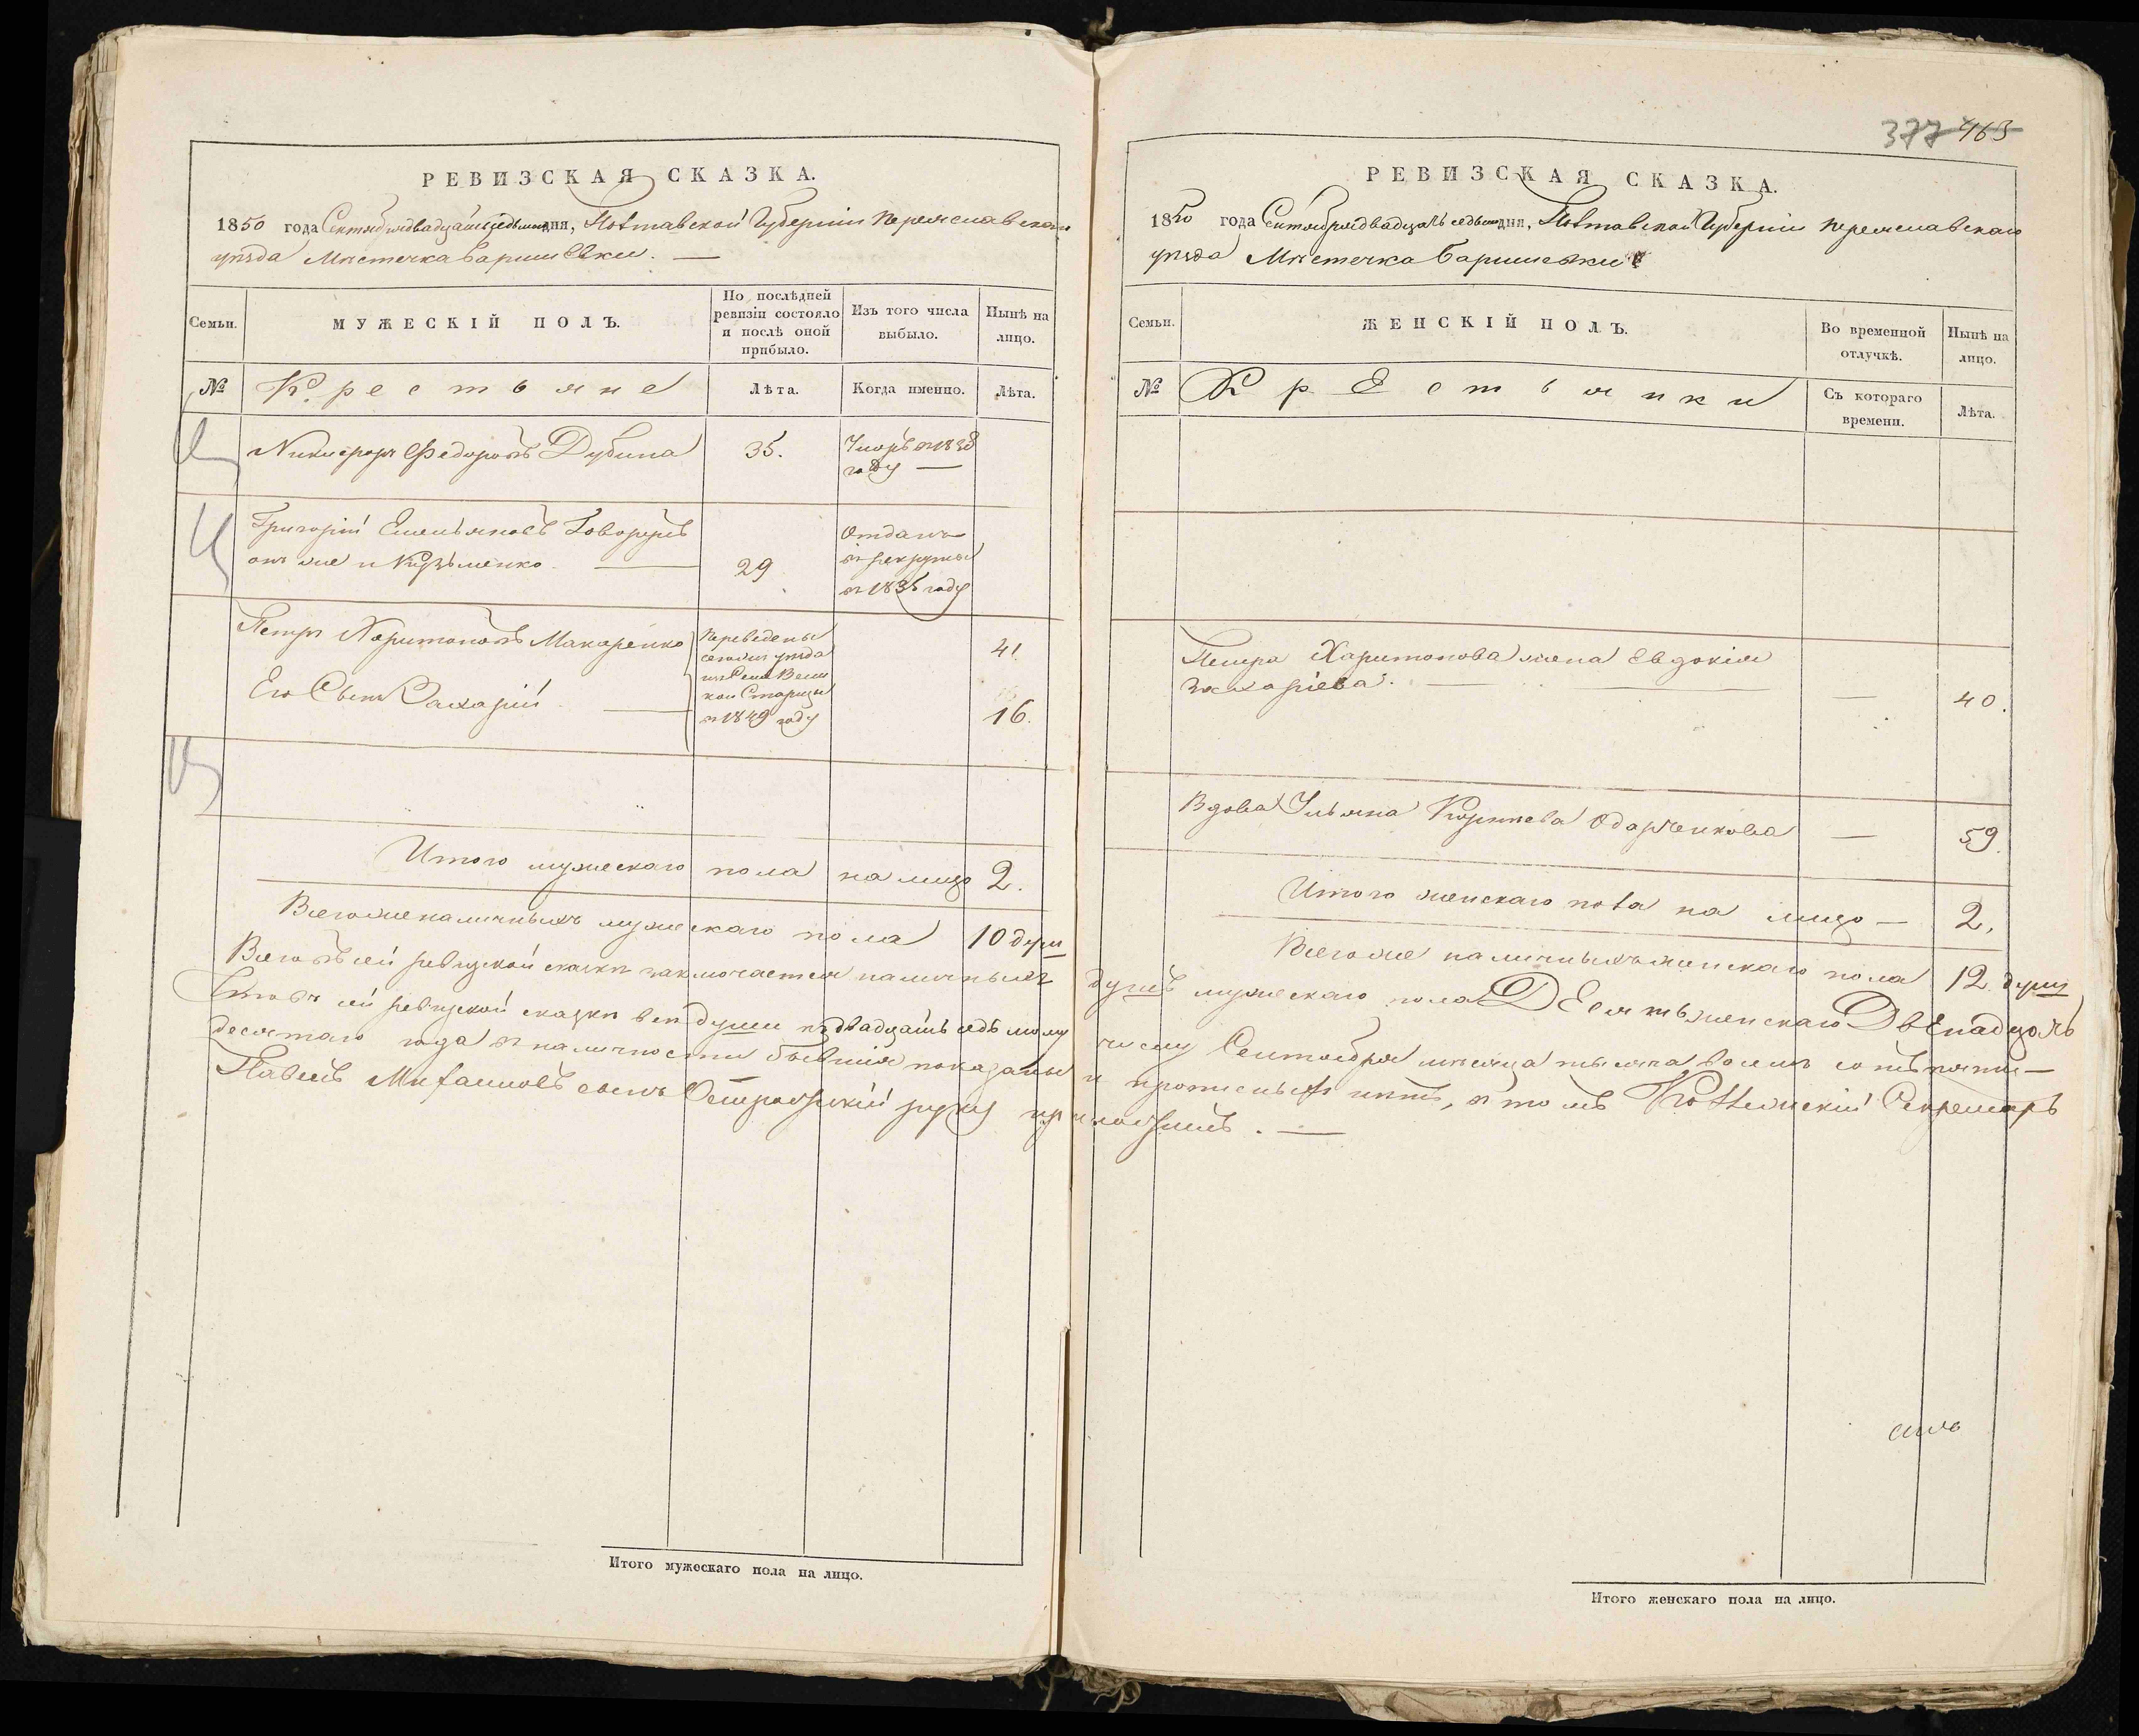 РЕВИЗСКАЯ СКАЗКА.
1850 года Сентября двадцать седьмого дня, Полтавской Губернiи Переяславскаго
уѣзда Мѣстечка Баришевки.
Семьи.
МУЖЕСКIЙ ПОЛЪ.
По послѣдней
ревизiи состояло
и послѣ оной
прибыло.
Изъ того числа
выбыло.
Нынѣ на
лицо.
№
Крестьяне
Лѣта.
Когда именно.
Лѣта.
Никифоръ Федоровъ Дубина
35.
Умеръ въ 1838
году —
Григорiй Емельяновъ Говорунъ
онъ же и Кузьменко.
29
Отданъ
въ рекруты
въ 1836 году
Петръ Харитоновъ Макаренко
41.
Его Сынъ Захарiй
16.
Переведены
сегожъ уѣзда
изъ Села Вели
кой Старицы
въ 1849 году
Итого мужескаго пола на лицо 2.
Всего же наличныхъ мужескаго пола 10 душ
РЕВИЗСКАЯ СКАЗКА.
377 463
1850 года Сентября двадцать седьмого дня, Полтавской Губернiи Переяславскаго
уѣзда Мѣстечка Баришевки
Семьи.
ЖЕНСКIЙ ПОЛЪ.
Во временной
отлучкѣ.
Нынѣ на
лицо.
№
Крестьянки
Съ котораго
времени.
Лѣта.
Петра Харитонова жена Евдокiя
Захарiева.
— 40.
Вдова Ульяна Корнѣева Одарченкова — 59.
Итого женскаго пола на лицо — 2.
Всего же наличныхъ женскаго пола 12 душъ
Всего въ сей ревизской сказкѣ заключается наличныхъ душъ мужескаго пола Десять женскаго Двенадцать
Что въ сей ревизской сказкѣ все души къ двадцать седьмому числу Сентября мѣсяца тысяча восемь сотъ пяти—
десятаго года въ наличности бывшiя показаны и прописныхъ нѣтъ, въ томъ Коллежскiй Секретарь
Павелъ Михаиловъ сынъ руку приложилъ. —
Итого мужескаго пола на лицо.
Итого женскаго пола на лицо.